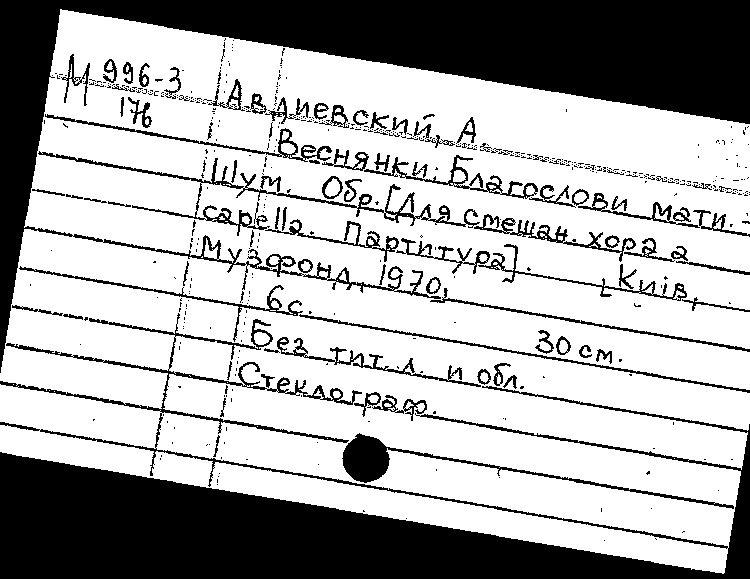 М 996-3
176
Авдиевский, А.
Веснянки: Благослови мати. -
Шум. Обр. [Для смешан. хора a
capella. Партитура]. [Київ,
Музфонд, 1970,
6 с. 30 см.
Без тит. л. и обл.
Стеклограф.